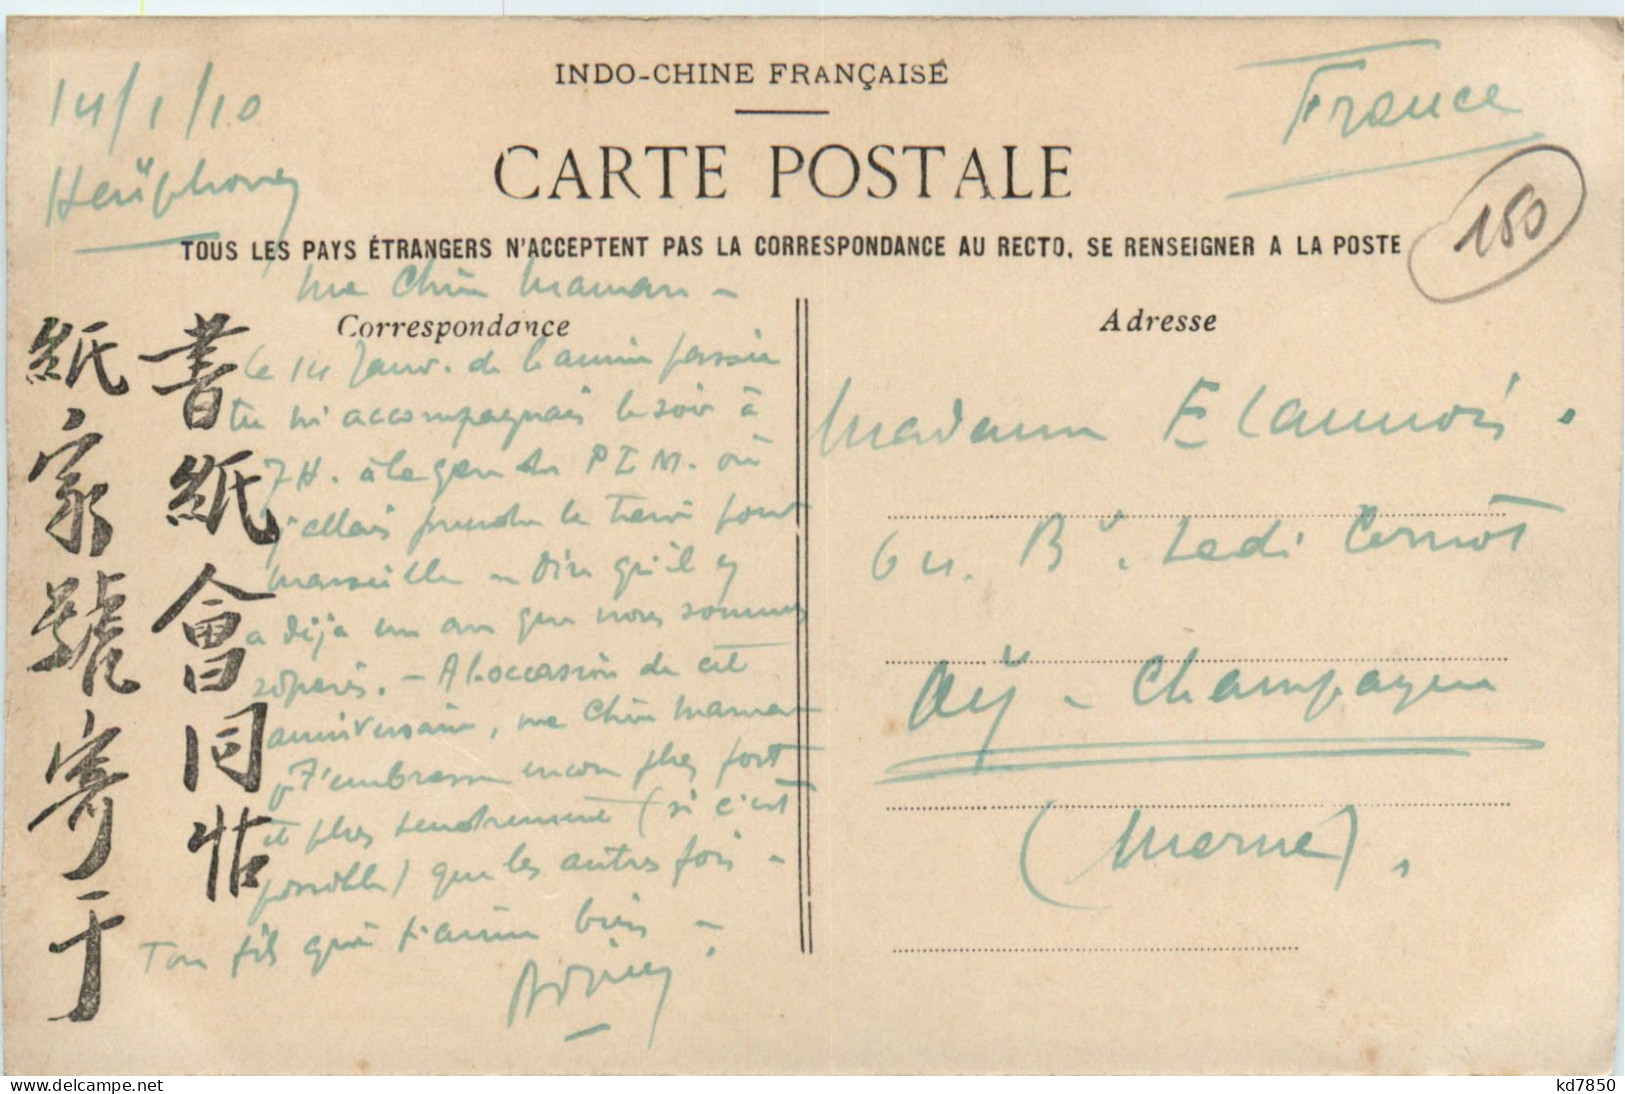 INDO-CHINE FRANÇAISE
CARTE POSTALE
TOUS LES PAYS ÉTRANGERS N'ACCEPTENT PAS LA CORRESPONDANCE AU RECTO, SE RENSEIGNER A LA POSTE
14/1/10
Haïphong
France
150
Ma Chère Maman –
Correspondance
Le 14 Janv. de l'année passée
tu m'accompagnais le soir à
7 H. à la gare du P L M. où
j'allais prendre le train pour
Marseille – Dire qu'il y
a déjà un an que nous sommes
séparés. – A l'occasion de cet
anniversaire, ma Chère Maman
je t'embrasse encore plus fort
et plus tendrement (si c'est
possible) que les autres fois –
Ton fils qui t'aime bien –
書紙會同帖
紙家號寄于
Adresse
Madame E Launois.
64. Bd. Sadi Carnot
Aÿ – Champagne
(Marne).
Delcampe.net
kd7850